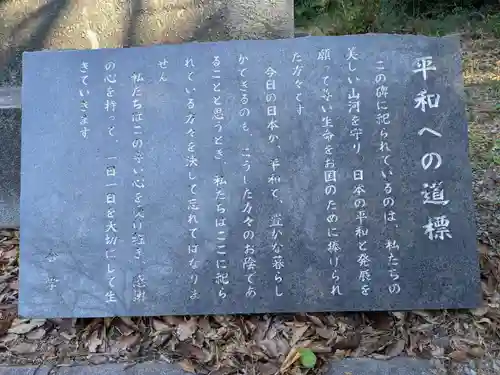 平和への道標
この碑に祀られているのは、私たちの
美しい山河を守り、日本の平和と発展を
願って尊い生命をお国のために捧げられ
た方々です
今日の日本が、平和で、豊かな暮らし
ができるのも、こうした方々のお陰であ
ることと思うとき、私たちはここに祀ら
れている方々を決して忘れてはなりま
せん
私たちはこの尊い心を受け継ぎ、感謝
の心を持って、一日一日を大切にして生
きていきます